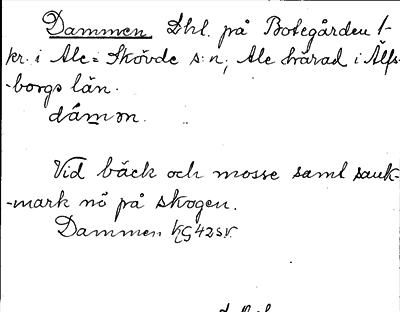 Dammen Lhl. på Botegården 1-
kr. i Ale=Skövde s:n, Ale härad i Älfs-
-borgs län.
dámən.
Vid bäck och mosse samt sank-
-mark nö på skogen.
Dammen KG 42 SV.